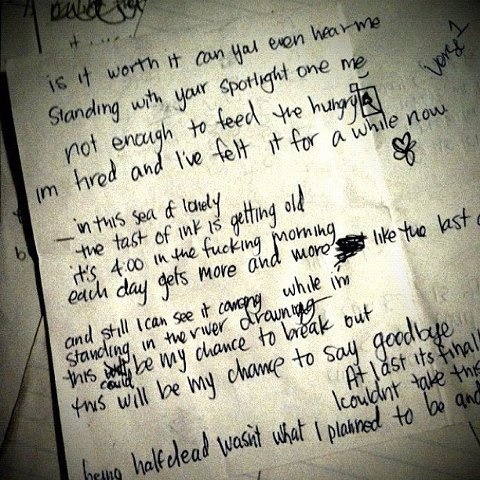 is it worth it can you even hear me
Standing with your spotlight one me
not enough to feed the hungry
im tired and I've felt it for a while now
verse 1
in this sea of lonely
the tast of ink is getting old
it's 4:00 in the fucking morning
each day gets more and more like the last
and still I can see it while im
standing in the river drowning
this could be my chance to break out
this will be my chance to say goodbye
At last its finall
I couldnt take this
being halfdead wasn't what I planned to be and